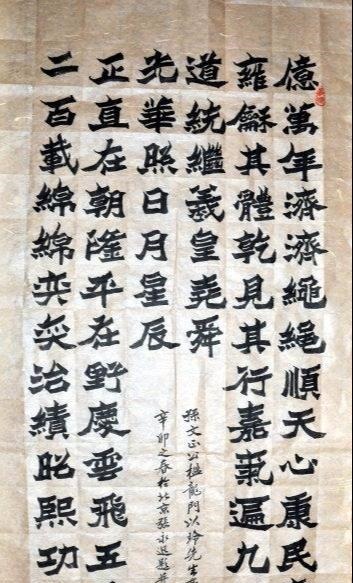 億萬年濟濟繩繩順天心康民
雍龢其體乾見其行嘉氣遍九
道統繼羲皇堯舜
光華照日月星辰
正直在朝隆平在野慶雲飛五
二百載綿綿奕奕治績昭熙功
孫文正公楹龍門以玲先生
辛卯之春於北京張永題